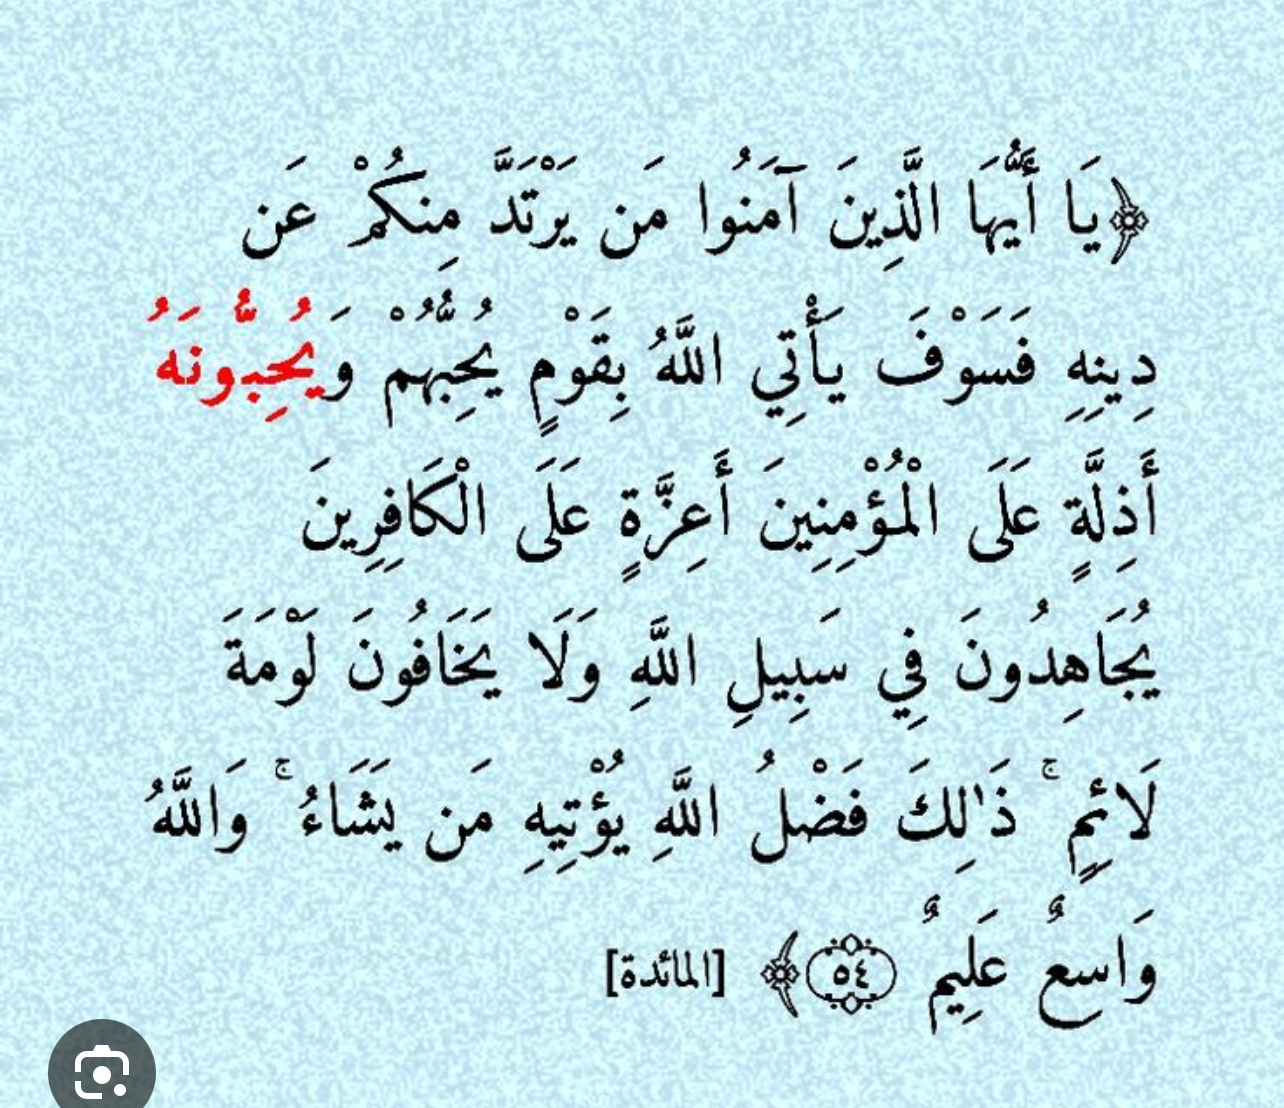 ﴿يَا أَيُّهَا الَّذِينَ آمَنُوا مَن يَرْتَدَّ مِنكُمْ عَن
دِينِهِ فَسَوْفَ يَأْتِي اللَّهُ بِقَوْمٍ يُحِبُّهُمْ وَيُحِبُّونَهُ
أَذِلَّةٍ عَلَى الْمُؤْمِنِينَ أَعِزَّةٍ عَلَى الْكَافِرِينَ
يُجَاهِدُونَ فِي سَبِيلِ اللَّهِ وَلَا يَخَافُونَ لَوْمَةَ
لَائِمٍ ۚ ذَٰلِكَ فَضْلُ اللَّهِ يُؤْتِيهِ مَن يَشَاءُ ۚ وَاللَّهُ
وَاسِعٌ عَلِيمٌ ٥٤﴾ [المائدة]